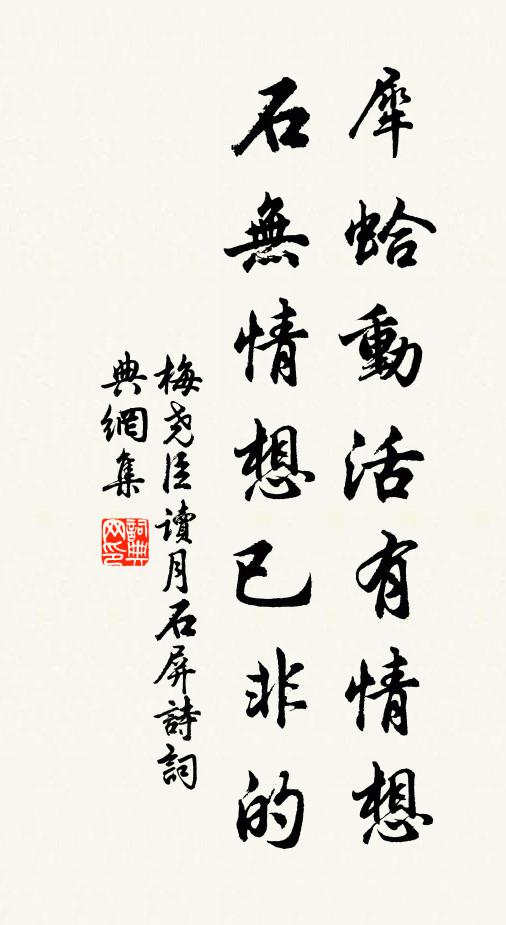 犀蛤動活有情想
石無情想已非的
梅尧臣读月石屏詩詞
典網集
詞典网印